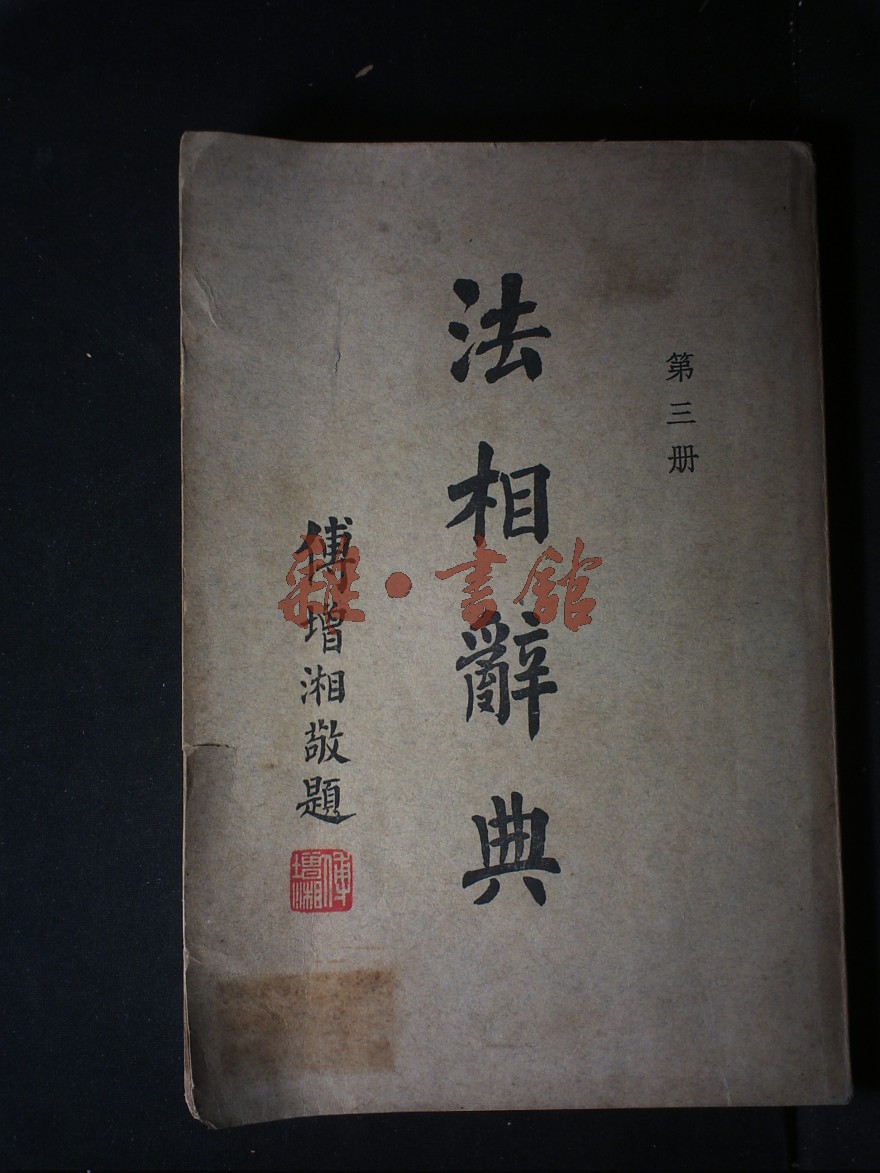 第三册
法相辭典
傅增湘敬題
傅增湘
雜·書館